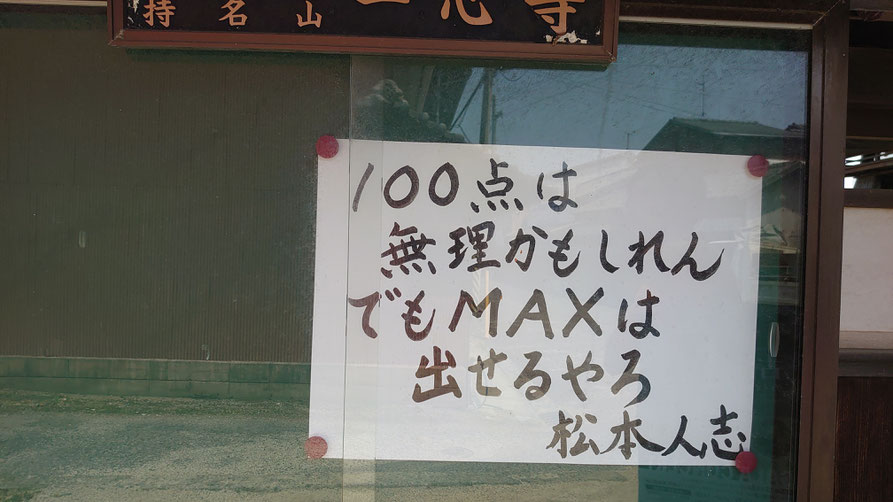 持名山 一心寺
100点は
無理かもしれん
でもMAXは
出せるやろ
松本人志